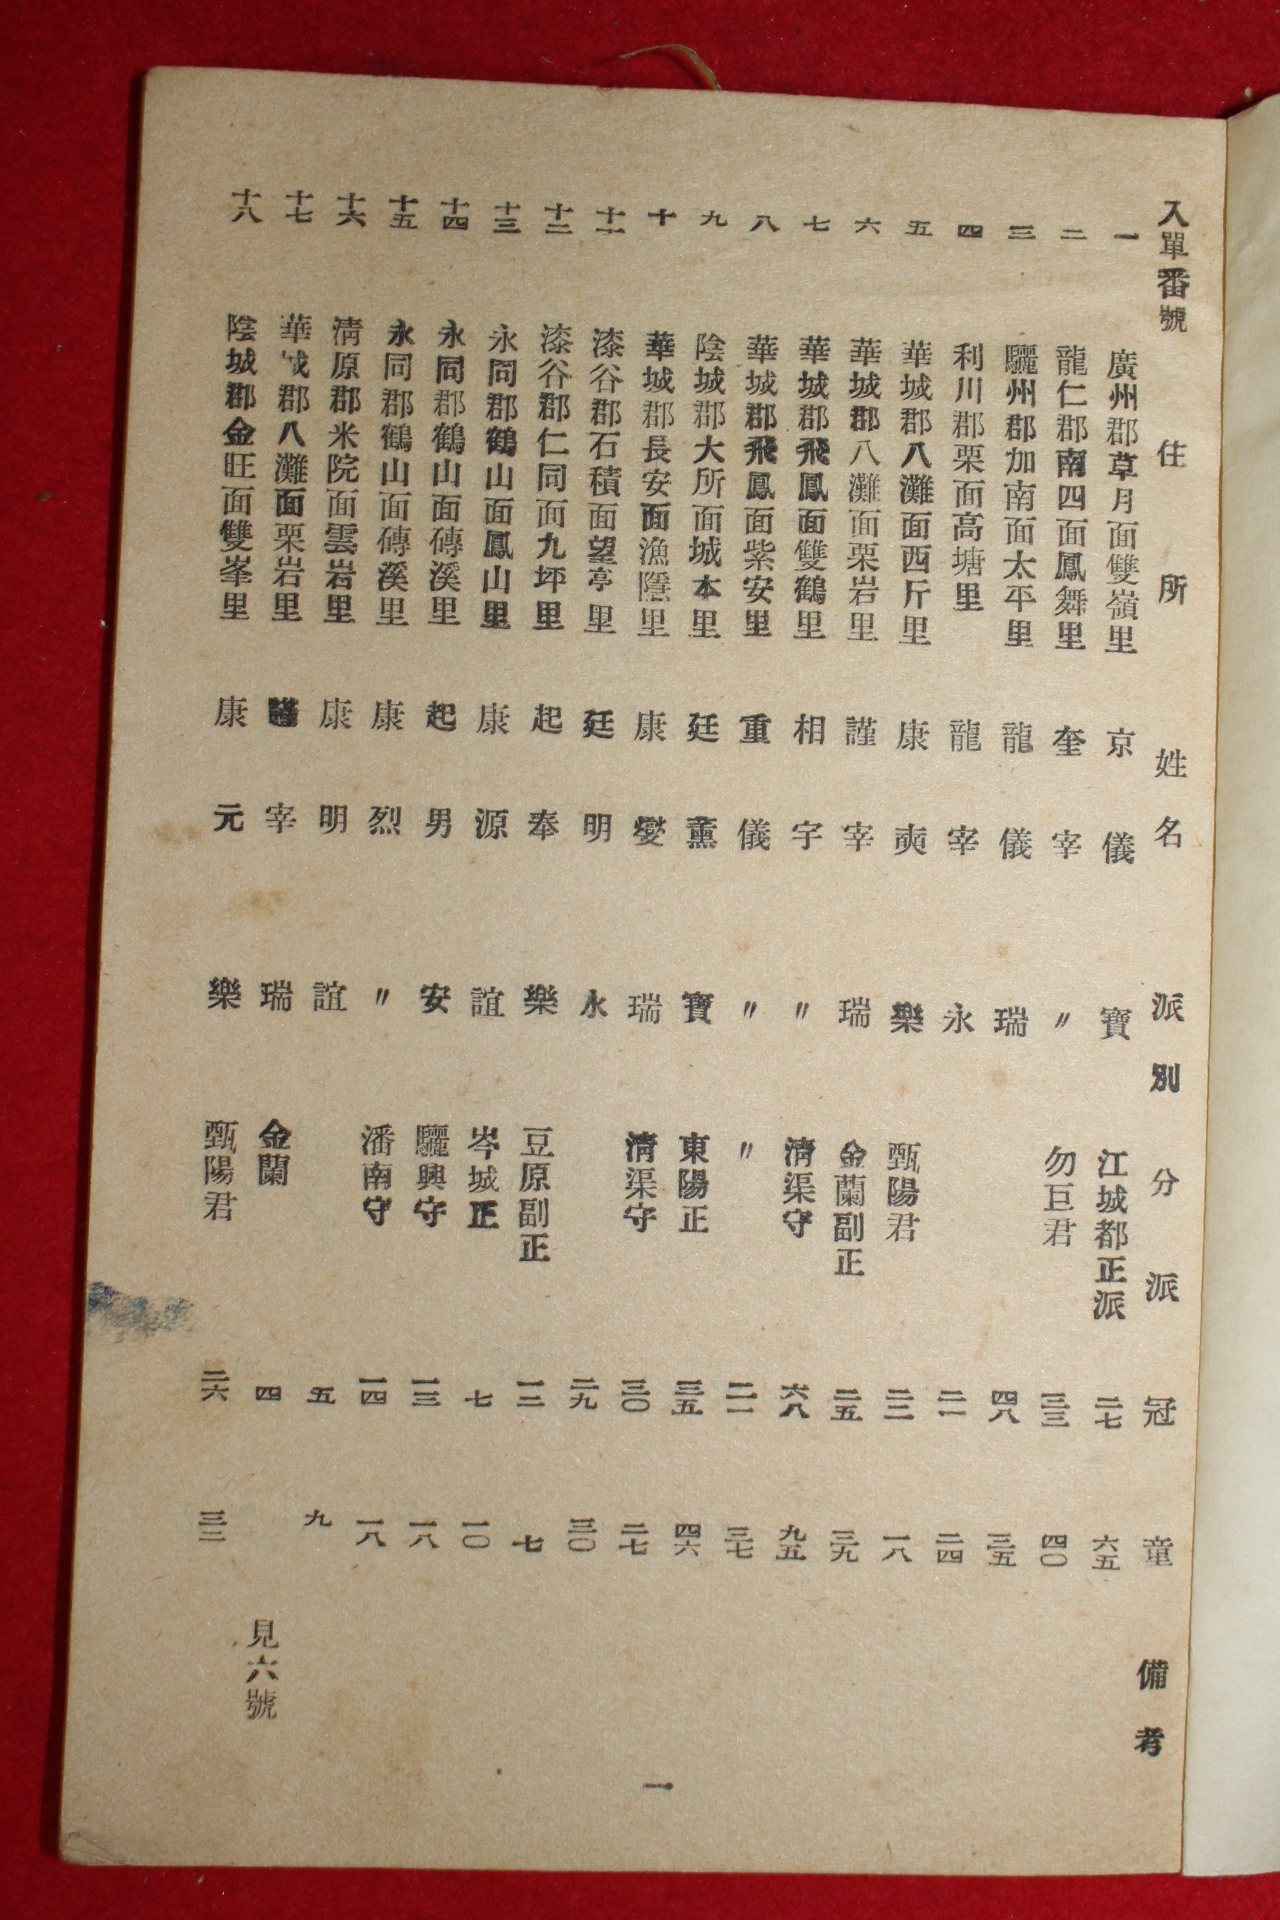 入單番號 住所 姓名 派別 分派 冠 童 備考
一 廣州郡草月面雙嶺里 京儀 寶 江城都正派 二七 六五
二 龍仁郡南四面鳳舞里 奎宰 〃 勿巨君 三三 四〇
三 驪州郡加南面太平里 龍儀 瑞 四八 三五
四 利川郡栗面高塘里 龍宰 永 二一 二四
五 華城郡八灘面西斤里 康奭 樂 甄陽君 二二 一八
六 華城郡八灘面栗岩里 謹宰 瑞 金蘭副正 二五 三九
七 華城郡飛鳳面雙鶴里 相宇 〃 清渠守 六八 九五
八 華城郡飛鳳面紫安里 重儀 〃 〃 二一 三七
九 陰城郡大所面城本里 廷薰 寶 東陽正 三五 四六
十 華城郡長安面漁隱里 康燮 瑞 清渠守 三〇 二七
十一 漆谷郡石積面望亭里 廷明 永 二九 三〇
十二 漆谷郡仁同面九坪里 起奉 樂 豆原副正 一二 七
十三 永同郡鶴山面鳳山里 康源 誼 岑城正 七 一〇
十四 永同郡鶴山面磚溪里 起男 安 驪興守 一三 一八
十五 永同郡鶴山面磚溪里 康烈 〃 潘南守 一四 一八
十六 淸原郡米院面雲岩里 康明 誼 五 九
十七 華城郡八灘面栗岩里 謹宰 瑞 金蘭 四 見六號
十八 陰城郡金旺面雙峯里 康元 樂 甄陽君 二六 三二
一